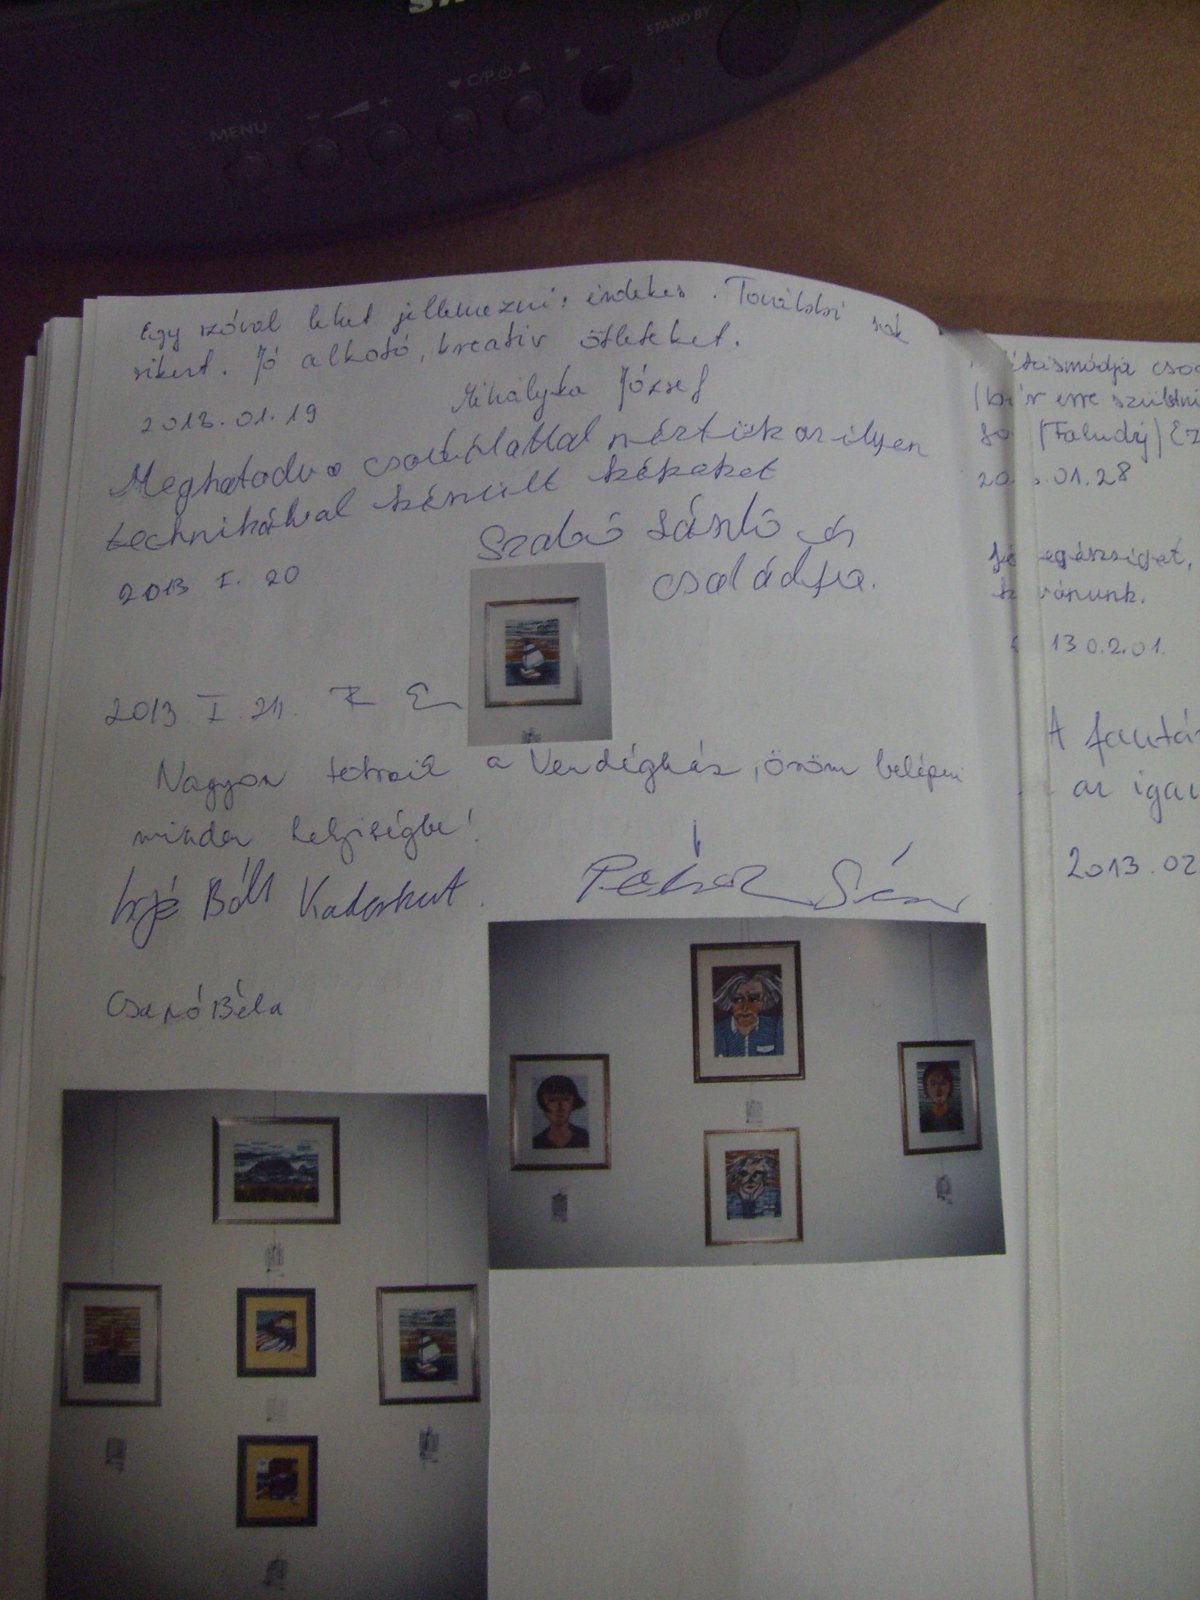 STAND BY
C/P
MENU
Egy szóval lehet jellemezni: érdekes. További sok
sikert. Jó alkotó, kreatív ötleteket.
Mihályka József
2013.01.19
Meghatódva csodálattal néztük az ilyen
technikával készült képeket
Szabó László és
családja.
2013 I. 20
2013 I. 24.
Nagyon tetszik a Vendégház, öröm belépni
minden helyiségbe!
Kadarkut
Csapó Béla
csod
erre szület
(Faludy) Ez
.01.28
egészséget,
kívánunk.
13 02.01.
A fantá
az igaz
2013.02